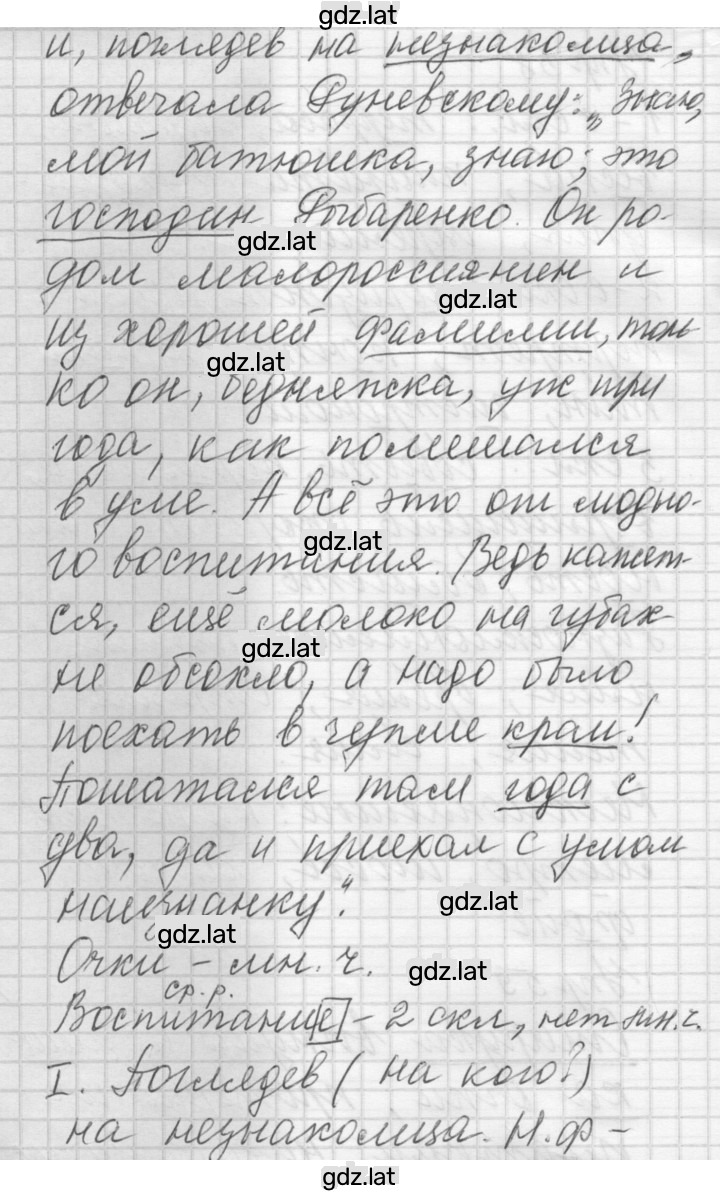 gdz.lat
и, поглядев на незнакомца,
отвечала Дуневскому: „Знаю,
мой батюшка, знаю; это
господин Дыбаренко. Он ро-
gdz.lat
дом малороссиянин и
gdz.lat
из хорошей фамилии, толь-
gdz.lat
ко он, бедняжка, уж три
года, как помешался
в уме. А всё это от модно-
gdz.lat
го воспитания. Ведь кажет-
ся, ещё молоко на губах
gdz.lat
не обсохло, а надо было
поехать в чужие краи!
Пошатался там года с
два, да и приехал с умом
наизнанку“.
gdz.lat
gdz.lat
Очки – мн. ч.
gdz.lat
ср. р.
Воспитание – 2 скл., нет мн. ч.
I. Поглядев (на кого?)
на незнакомца. Н. ф –
gdz.lat